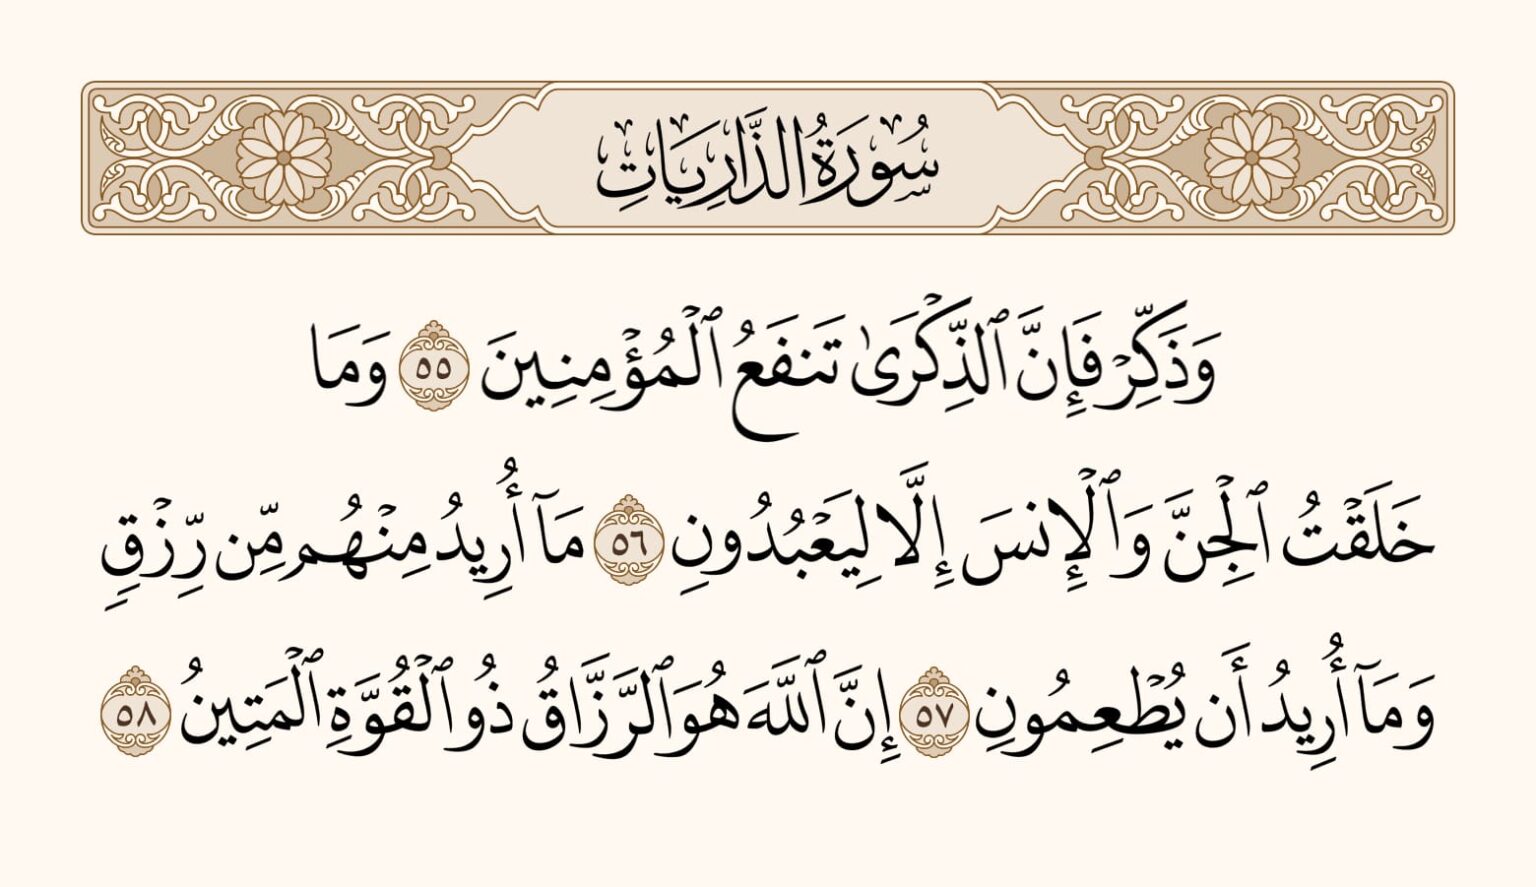 سُورَةُ الذَّارِيَاتِ
وَذَكِّرۡ فَإِنَّ ٱلذِّكۡرَىٰ تَنفَعُ ٱلۡمُؤۡمِنِينَ ٥٥ وَمَا
خَلَقۡتُ ٱلۡجِنَّ وَٱلۡإِنسَ إِلَّا لِيَعۡبُدُونِ ٥٦ مَآ أُرِيدُ مِنۡهُم مِّن رِّزۡقٖ
وَمَآ أُرِيدُ أَن يُطۡعِمُونِ ٥٧ إِنَّ ٱللَّهَ هُوَ ٱلرَّزَّاقُ ذُو ٱلۡقُوَّةِ ٱلۡمَتِينُ ٥٨